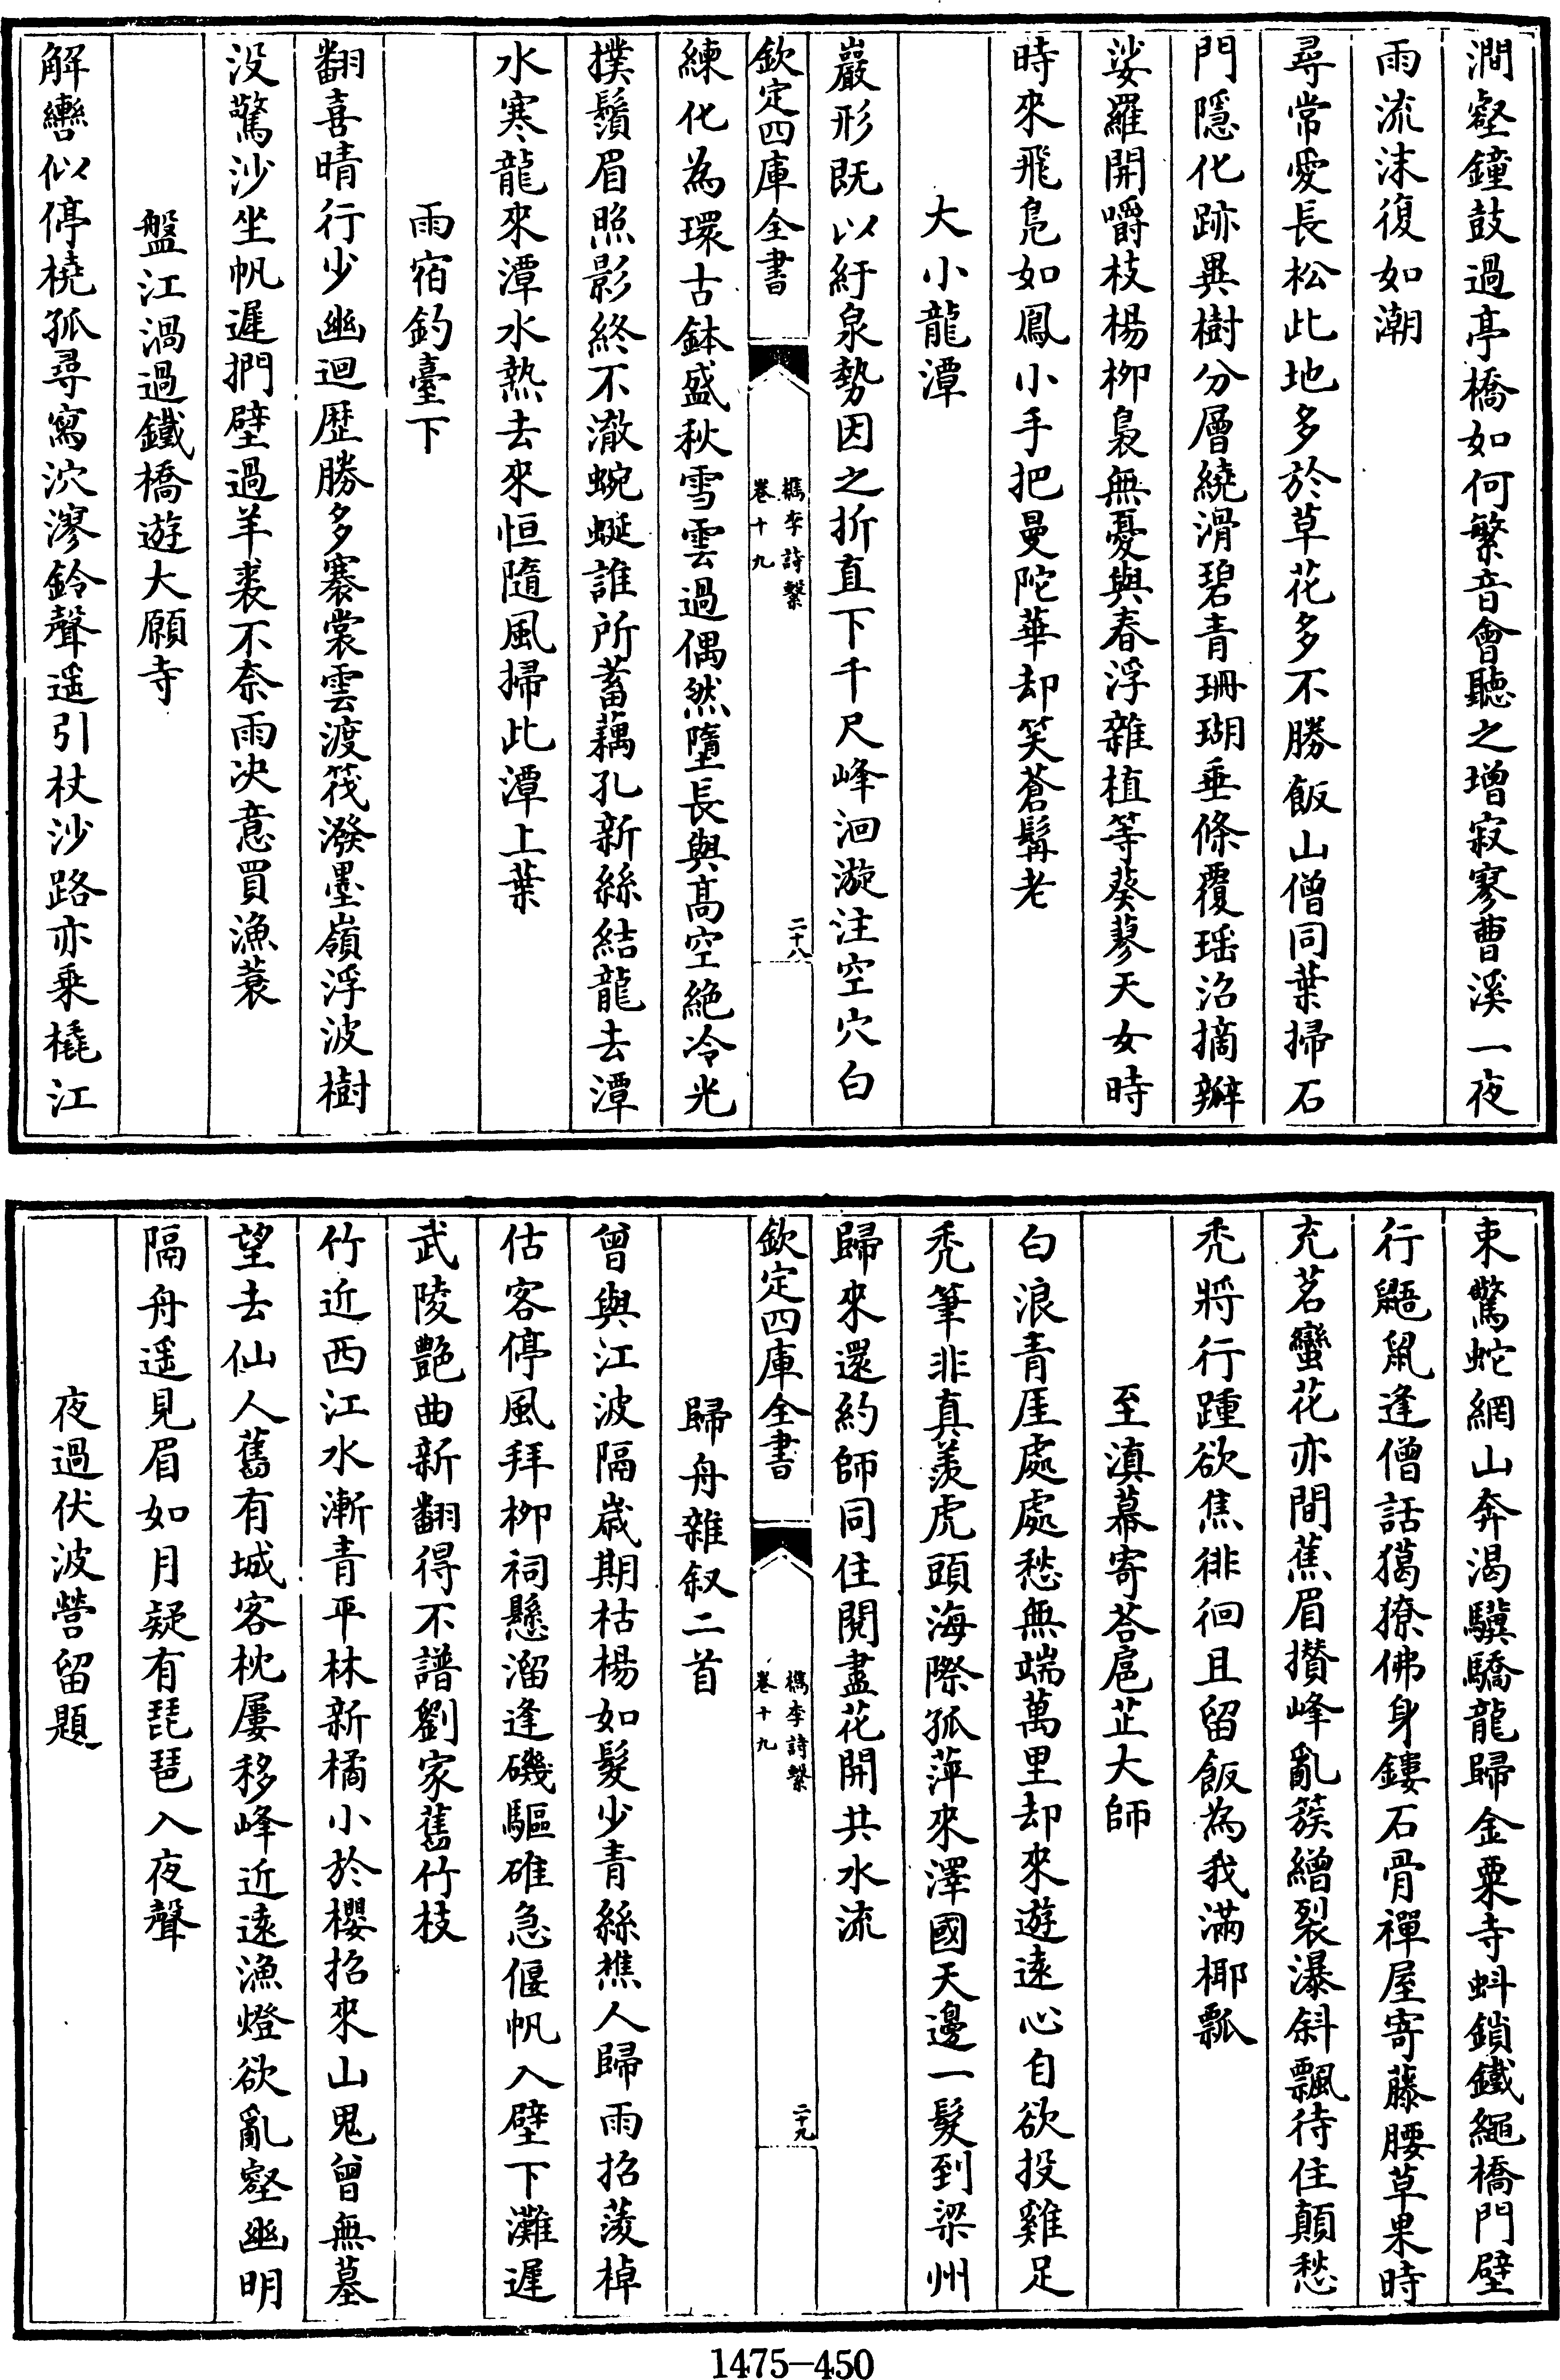 澗壑鐘鼓過亭橋如何繁音會聽之增寂寥曹溪一夜
雨流沫復如潮
尋常愛長松此地多於草花多不勝飯山僧同葉掃石
門隱化跡異樹分層繞滑碧青珊瑚垂條覆瑶沼摘瓣
娑羅開嚼枝楊柳裊無憂與春浮雜植等葵蓼天女時
時來飛鳧如鳳小手把曼陀華却笑蒼髯老
大小龍潭
巖形既以紆泉勢因之折直下千尺峰洄漩注空穴白
欽定四庫全書
檇李詩繫
卷十九
二十八
練化為環古鉢盛秋雪雲過偶然墮長與髙空絶冷光
撲鬚眉照影終不澈蜿蜒誰所蓄藕孔新絲結龍去潭
水寒龍來潭水熱去來恒隨風掃此潭上葉
雨宿釣臺下
翻喜晴行少幽迴歴勝多褰裳雲渡筏潑墨嶺浮波樹
没驚沙坐帆遲捫壁過羊裘不奈雨决意買漁蓑
盤江渦過鐵橋遊大願寺
解轡似停橈孤尋窩泬漻鈴聲遥引杖沙路亦乗橇江
束驚蛇網山奔渴驥驕龍歸金粟寺蚪鎖鐵繩橋門壁
行鼯鼠逢僧話獦獠佛身鏤石骨禪屋寄藤腰草果時
充茗蠻花亦間蕉眉攅峰亂簇繒裂瀑斜飄待住顛愁
禿將行踵欲焦徘徊且留飯為我滿椰瓢
至滇幕寄荅扈芷大師
白浪青厓處處愁無端萬里却來遊遠心自欲投雞足
禿筆非真羨虎頭海際孤萍來澤國天邊一髮到梁州
歸來還約師同住閱盡花開共水流
欽定四庫全書
檇李詩繫
卷十九
二十九
歸舟雜叙二首
曾與江波隔嵗期枯楊如髮少青絲樵人歸雨招菱棹
估客停風拜柳祠懸溜逢磯驅碓急偃帆入壁下灘遲
武陵艶曲新翻得不譜劉家舊竹枝
竹近西江水漸青平林新橘小於櫻招來山鬼曾無墓
望去仙人舊有城客枕屢移峰近遠漁燈欲亂壑幽明
隔舟遥見眉如月疑有琵琶入夜聲
夜過伏波營留題
1475—450